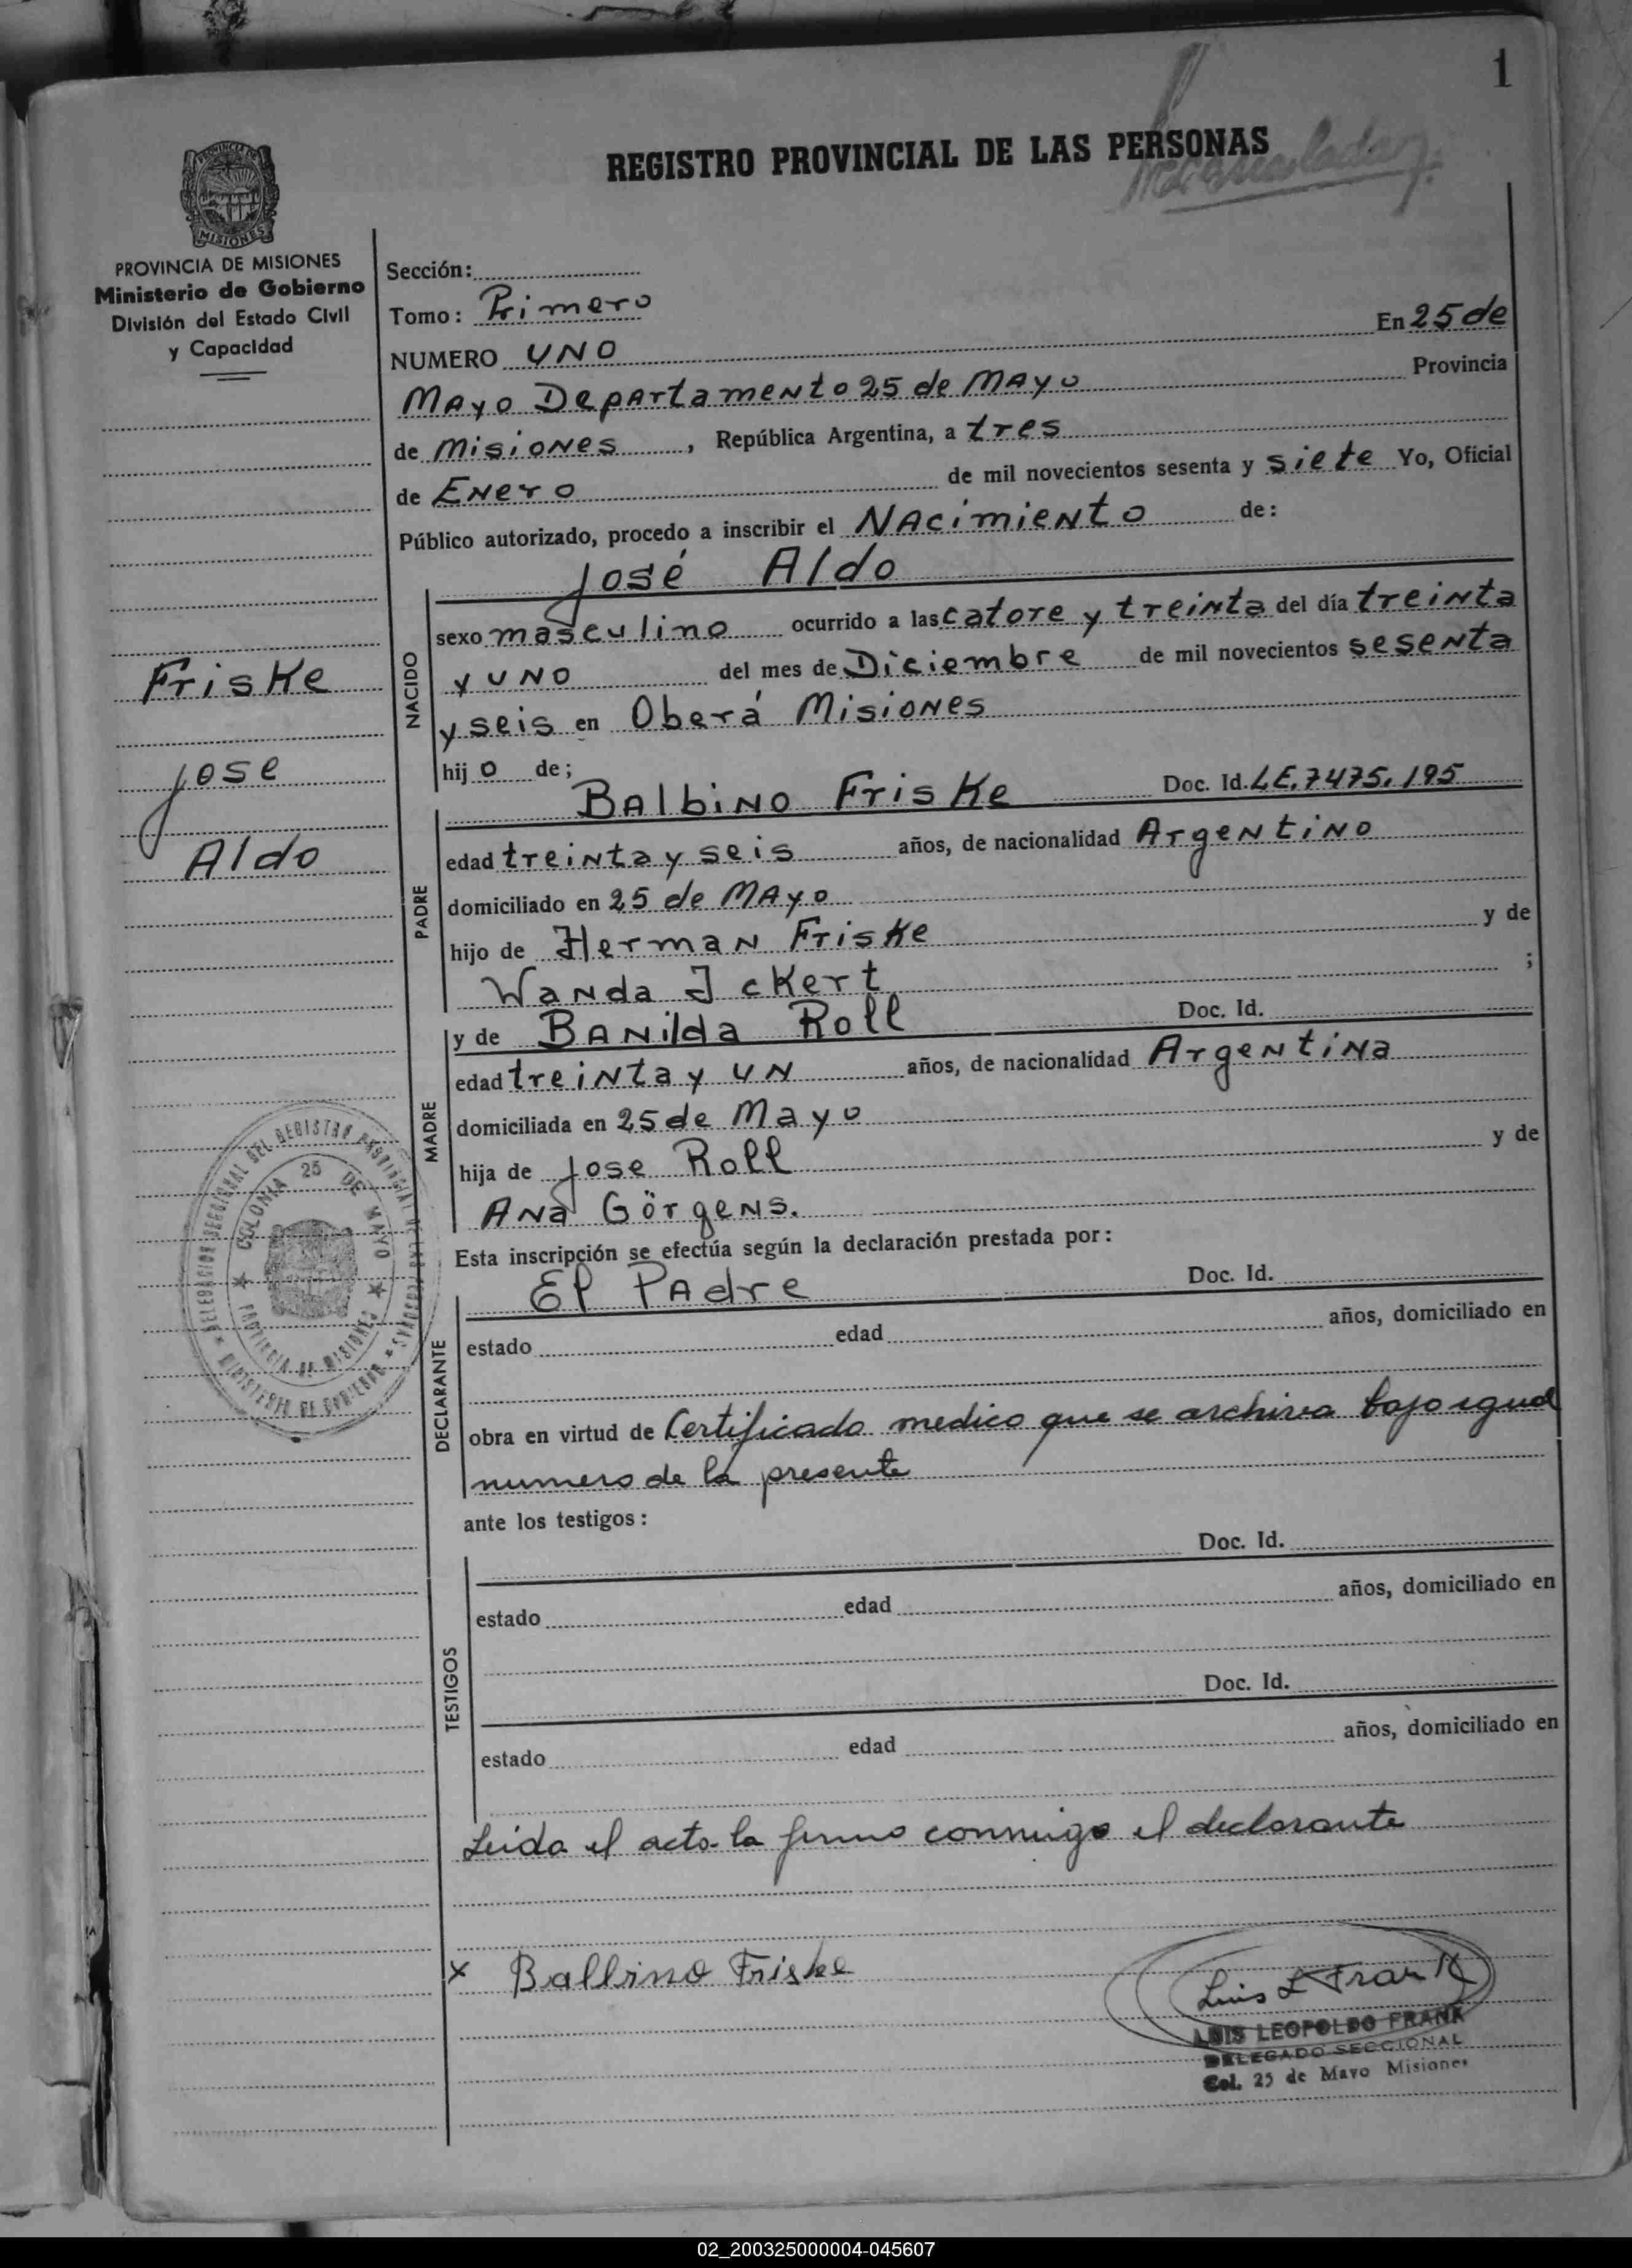 1
REGISTRO PROVINCIAL DE LAS PERSONAS
PROVINCIA DE
MISIONES
PROVINCIA DE MISIONES
Ministerio de Gobierno
División del Estado Civil
y Capacidad
Sección:
Tomo: Primero
NUMERO UNO En 25 de
Mayo Departamento 25 de Mayo Provincia
de Misiones, República Argentina, a tres
de Enero de mil novecientos sesenta y siete Yo, Oficial
Público autorizado, procedo a inscribir el Nacimiento de:
José Aldo
NACIDO
sexo masculino ocurrido a las catore y treinta del día treinta
y uno del mes de Diciembre de mil novecientos sesenta
y seis en Oberá Misiones
hijo de;
Friske
Jose
Aldo
Balbino Friske Doc. Id. LE. 7475.195
PADRE
edad treinta y seis años, de nacionalidad Argentino
domiciliado en 25 de Mayo
hijo de Herman Friske y de
Wanda Ickert ;
y de Banilda Roll Doc. Id.
MADRE
edad treinta y un años, de nacionalidad Argentina
domiciliada en 25 de Mayo
hija de Jose Roll y de
Ana Görgens.
Esta inscripción se efectúa según la declaración prestada por:
El Padre Doc. Id.
DECLARANTE
estado edad años, domiciliado en
obra en virtud de Certificado medico que se archiva bajo igual
numero de la presente
DELEGACION SECCIONAL DEL REGISTRO PROVINCIAL DE LAS PERSONAS
MINISTERIO DE GOBIERNO
COLONIA 25 DE MAYO
PROVINCIA DE MISIONES
ante los testigos:
Doc. Id.
TESTIGOS
estado edad años, domiciliado en
Doc. Id.
estado edad años, domiciliado en
Leida el acta la firma conmigo el declarante
x Balbino Friske
Luis L Frank
LUIS LEOPOLDO FRANK
DELEGADO SECCIONAL
Col. 25 de Mayo Misiones
02_200325000004-045607